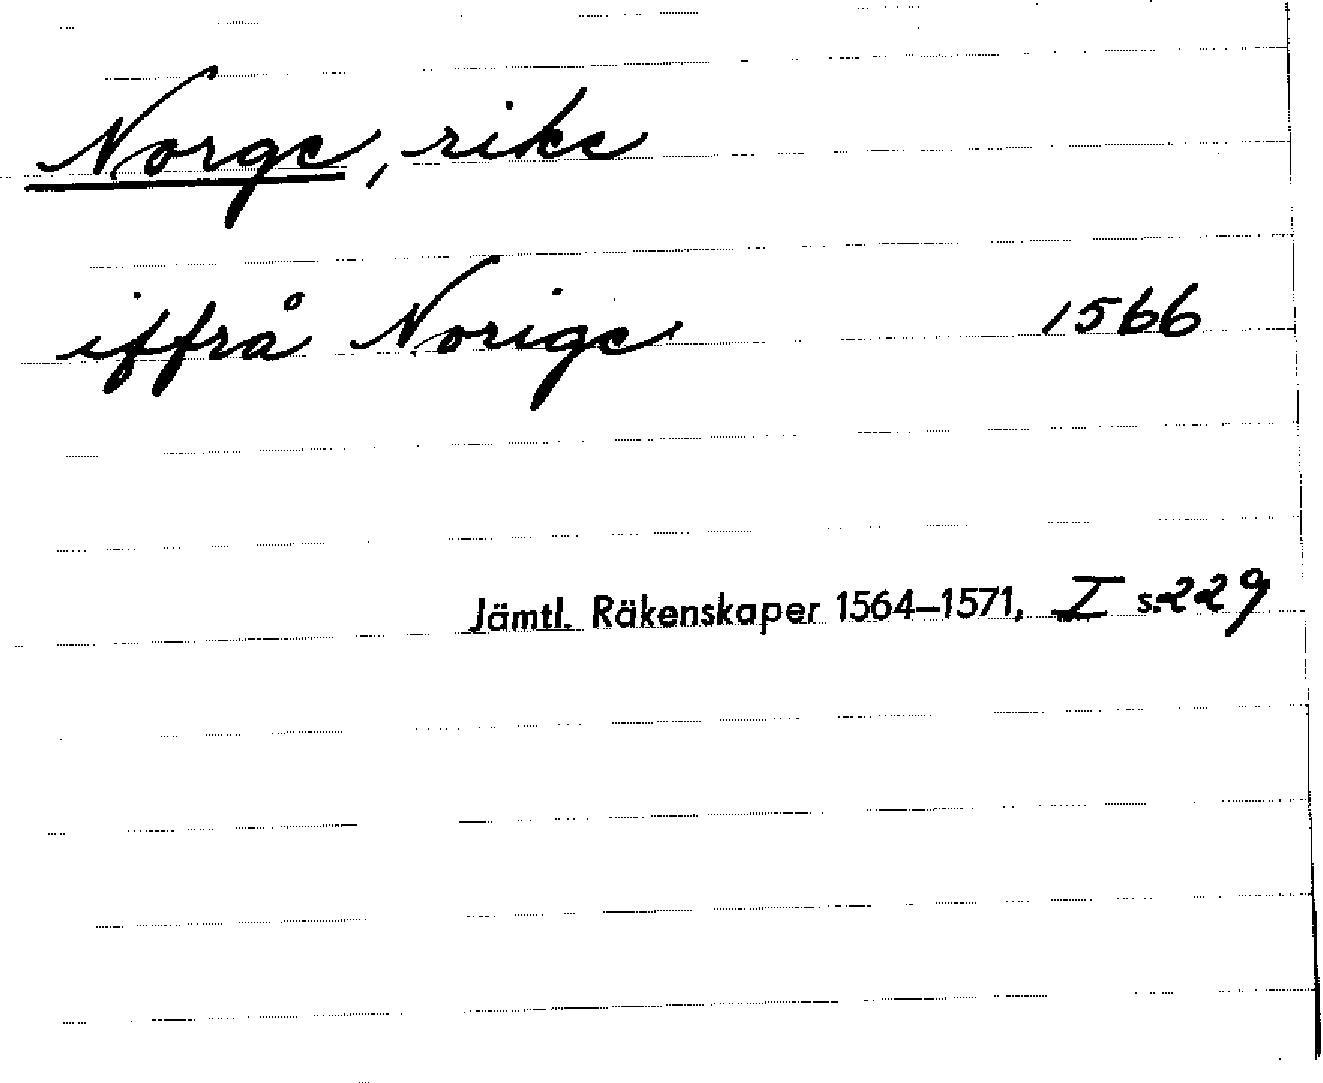 Norge, rike
iffrå Norige 1566
Jämtl. Räkenskaper 1564–1571, I s. 229